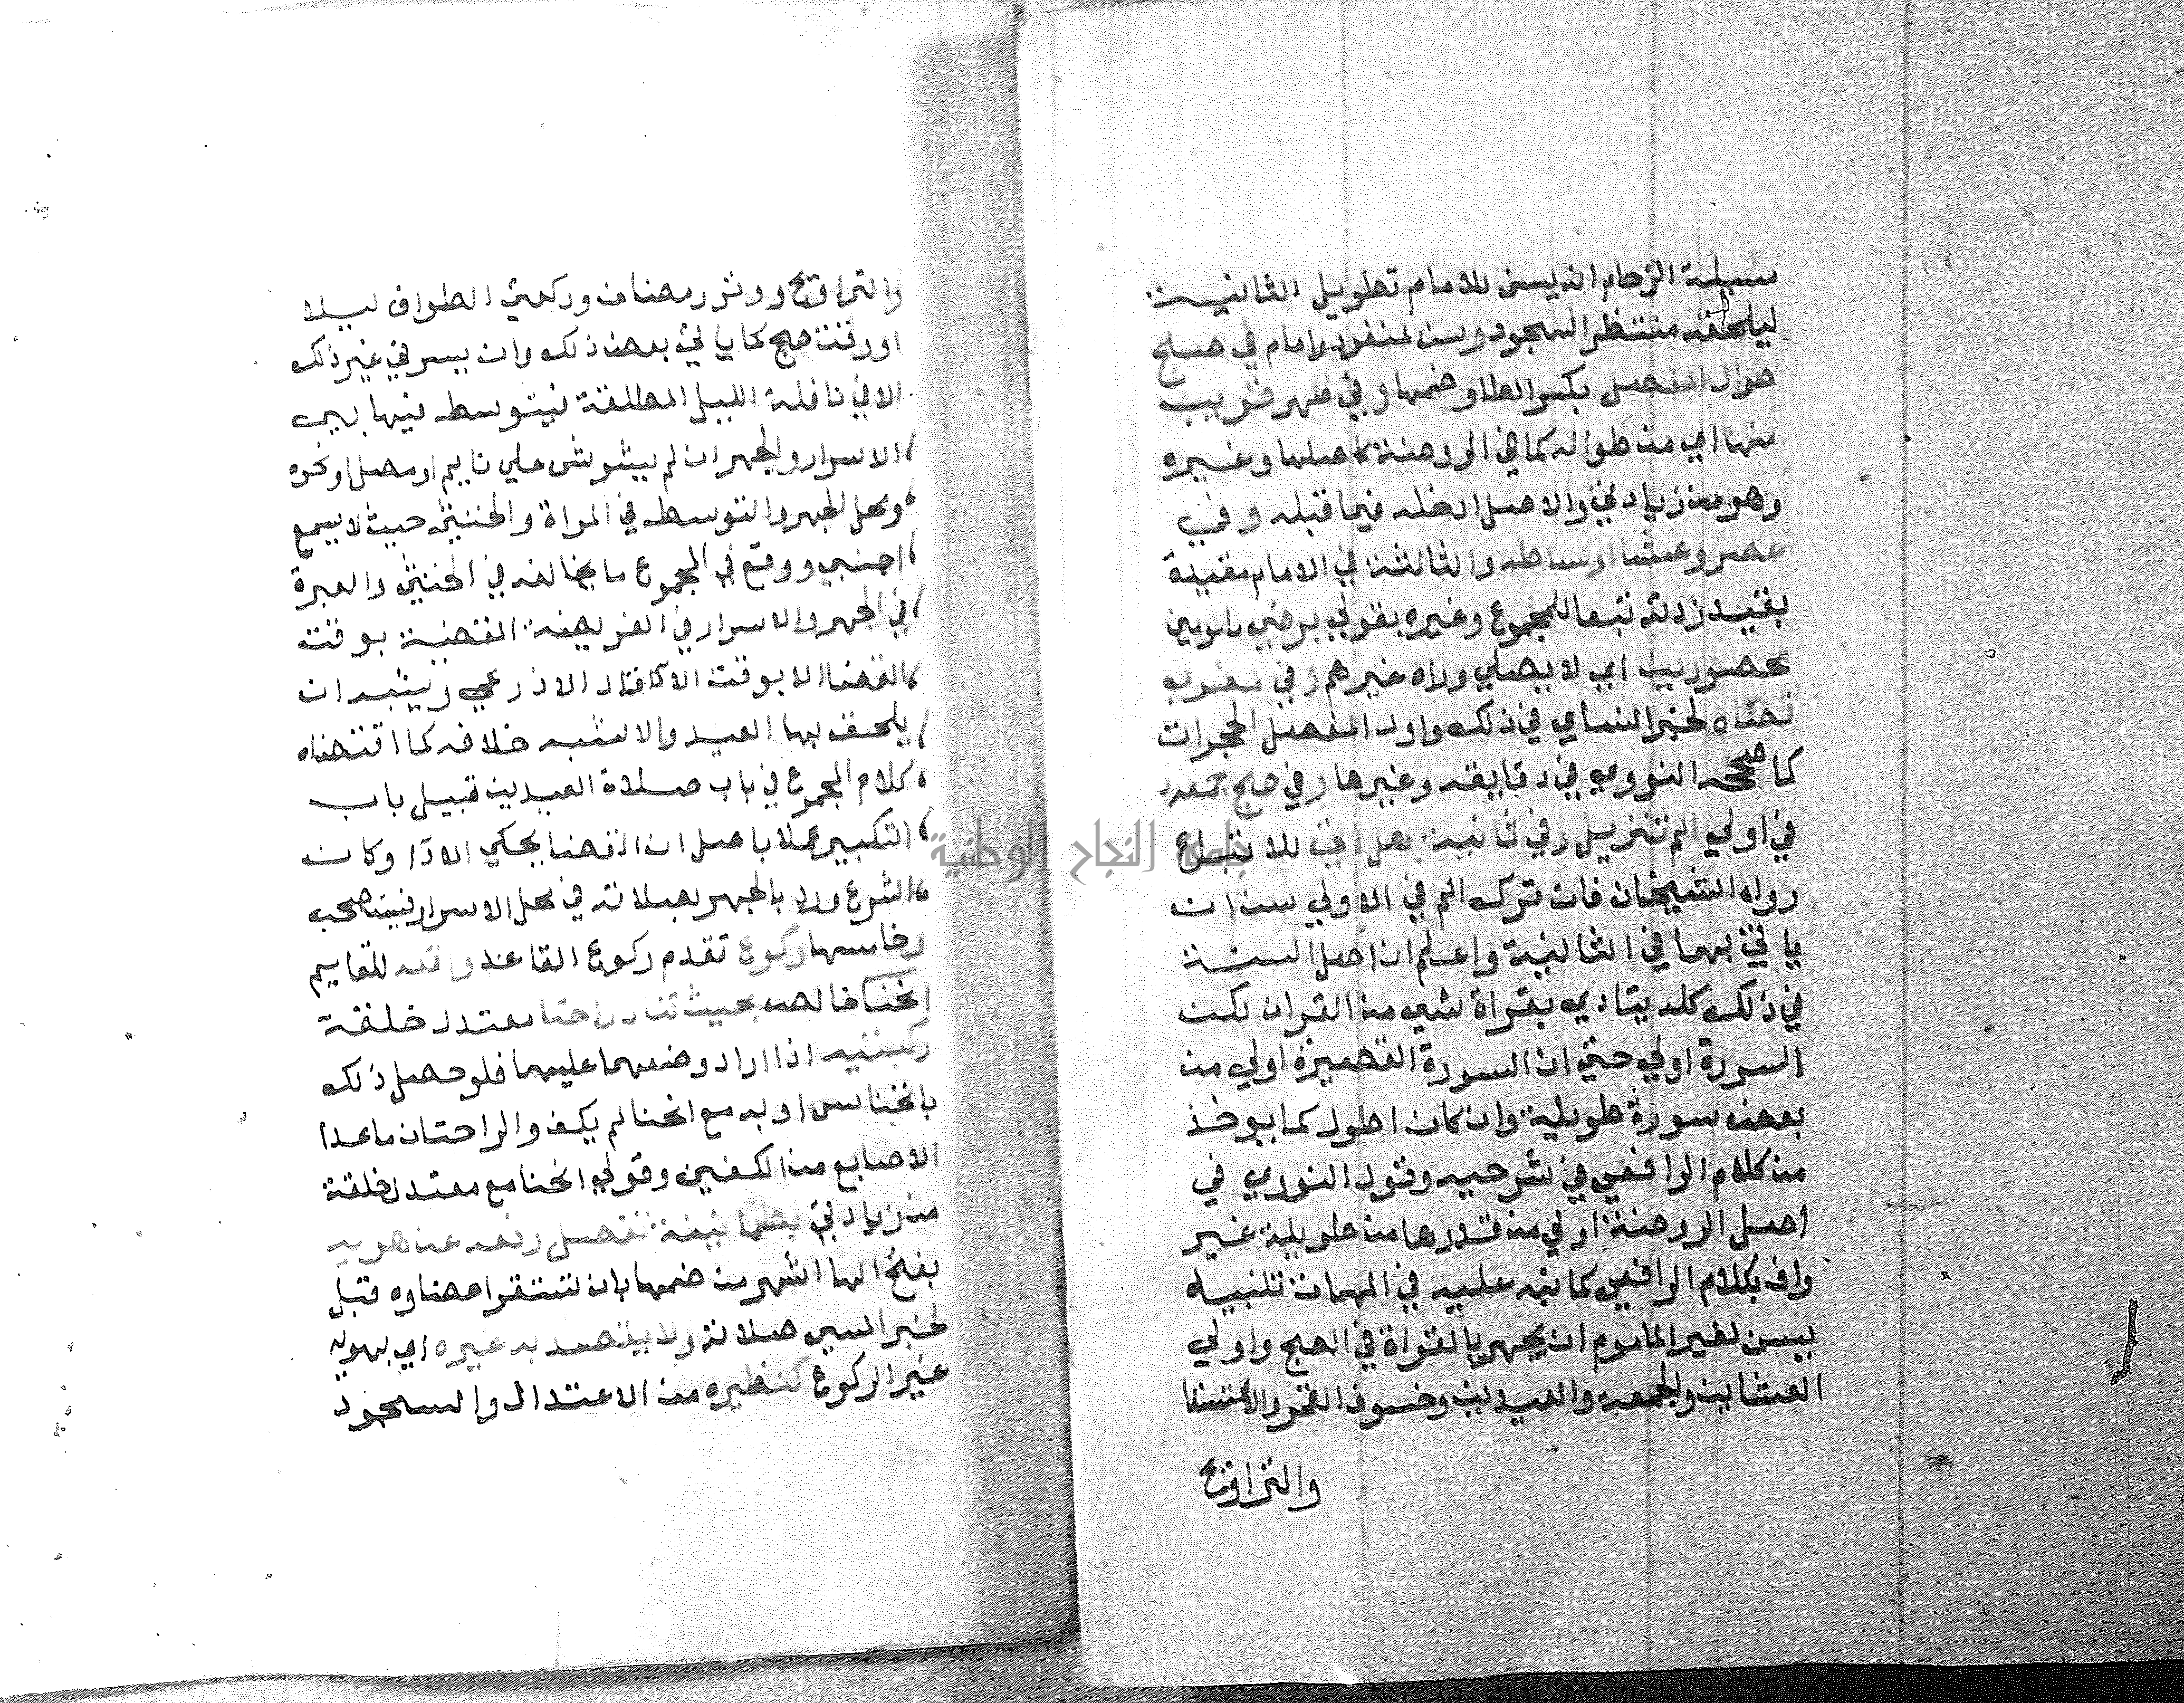 مسيلة الزحام انه يسن للامام تطويل الثانية
ليلحقه منتظر السجود وسن لمنفرد وامام في صبح
طوال المفصل بكسر الطا وضمها وفي ظهر قريب
منها اي من طواله كما في الروضة كاصلها وغيره
وهو من زيادتي والاصل ادخله فيما قبله وفي
عصر وعشا اوساطه والثالثة في الامام مقيدة
بقيد زدته تبعا للمجموع وغيره بقولي برضى مامومين
محصورين اي لا يصلي وراه غيرهم وفي مغرب
قصاره لخبر النساي في ذلك واول المفصل الحجرات
كما صححه النووي في دقايقه وغيرها وفي صبح جمعة
في اولي الم تنزيل وفي ثانية هل اتى للاتباع
رواه الشيخان فان ترك الم في الاولي سن ان
ياتي بهما في الثانية واعلم ان اصل السنة
في ذلك كله يتادي بقراة شي من القران لكن
السورة اولي حتي ان السورة القصيرة اولي من
بعض سورة طويلة وان كان اطول كما يوخذ
من كلام الرافعي في شرحيه وقول النووي في
اصل الروضة اولي من قدرها من طويلة غير
واف بكلام الرافعي كما نبه عليه في المهمات تنبيه
يسن لغير الماموم ان يجهر بالقراة في الصبح واولي
العشاين والجمعة والعيدين وخسوف القمر والاستسقا
والتراويح
والتراويح ووتر رمضان وركعتي الطواف ليلا
او وقت صبح كما ياتي بعض ذلك وان يسر في غير ذلك
الا في نافلة الليل المطلقة فيتوسط فيها بين
الاسرار والجهر ان لم يشوش علي نايم او مصل او نحوه
ومحل الجهر والتوسط في المراة والخنثي حيث لا يسمع
اجنبي ووقع في المجموع ما يخالفه في الخنثي والعبرة
في الجهر والاسرار في الفريضة المقضية بوقت
القضا لا بوقت الادا قال الاذرعي ويشبه ان
يلحق بها العيد والاشبه خلافه كما اقتضاه
كلام المجموع في باب صلاة العيدين قبيل باب
التكبير عملا باصل ان القضا يحكي الادا وكان
الشرع ورد بالجهر بصلاته في محل الاسرار فيستصحب
وخامسها ركوع تقدم ركوع القاعد واقله للقايم
انحنا خالص بحيث تنال راحتا معتدل خلقة
ركبتيه اذا اراد وضعهما عليهما فلو حصل ذلك
بانخناس او به مع انحنا لم يكف والراحتان ما عدا
الاصابع من الكفين وقولي انحنا مع معتدل خلقة
من زيادتي بطمانينة تفصل رفعه عن هويه
بفتح الها اشهر من ضمها بان تستقر اعضاوه قبل
لخبر المسي صلاته ولا يقصد به غيره اي بهويه
غير الركوع كنظيره من الاعتدال والسجود
جامعة النجاح الوطنية